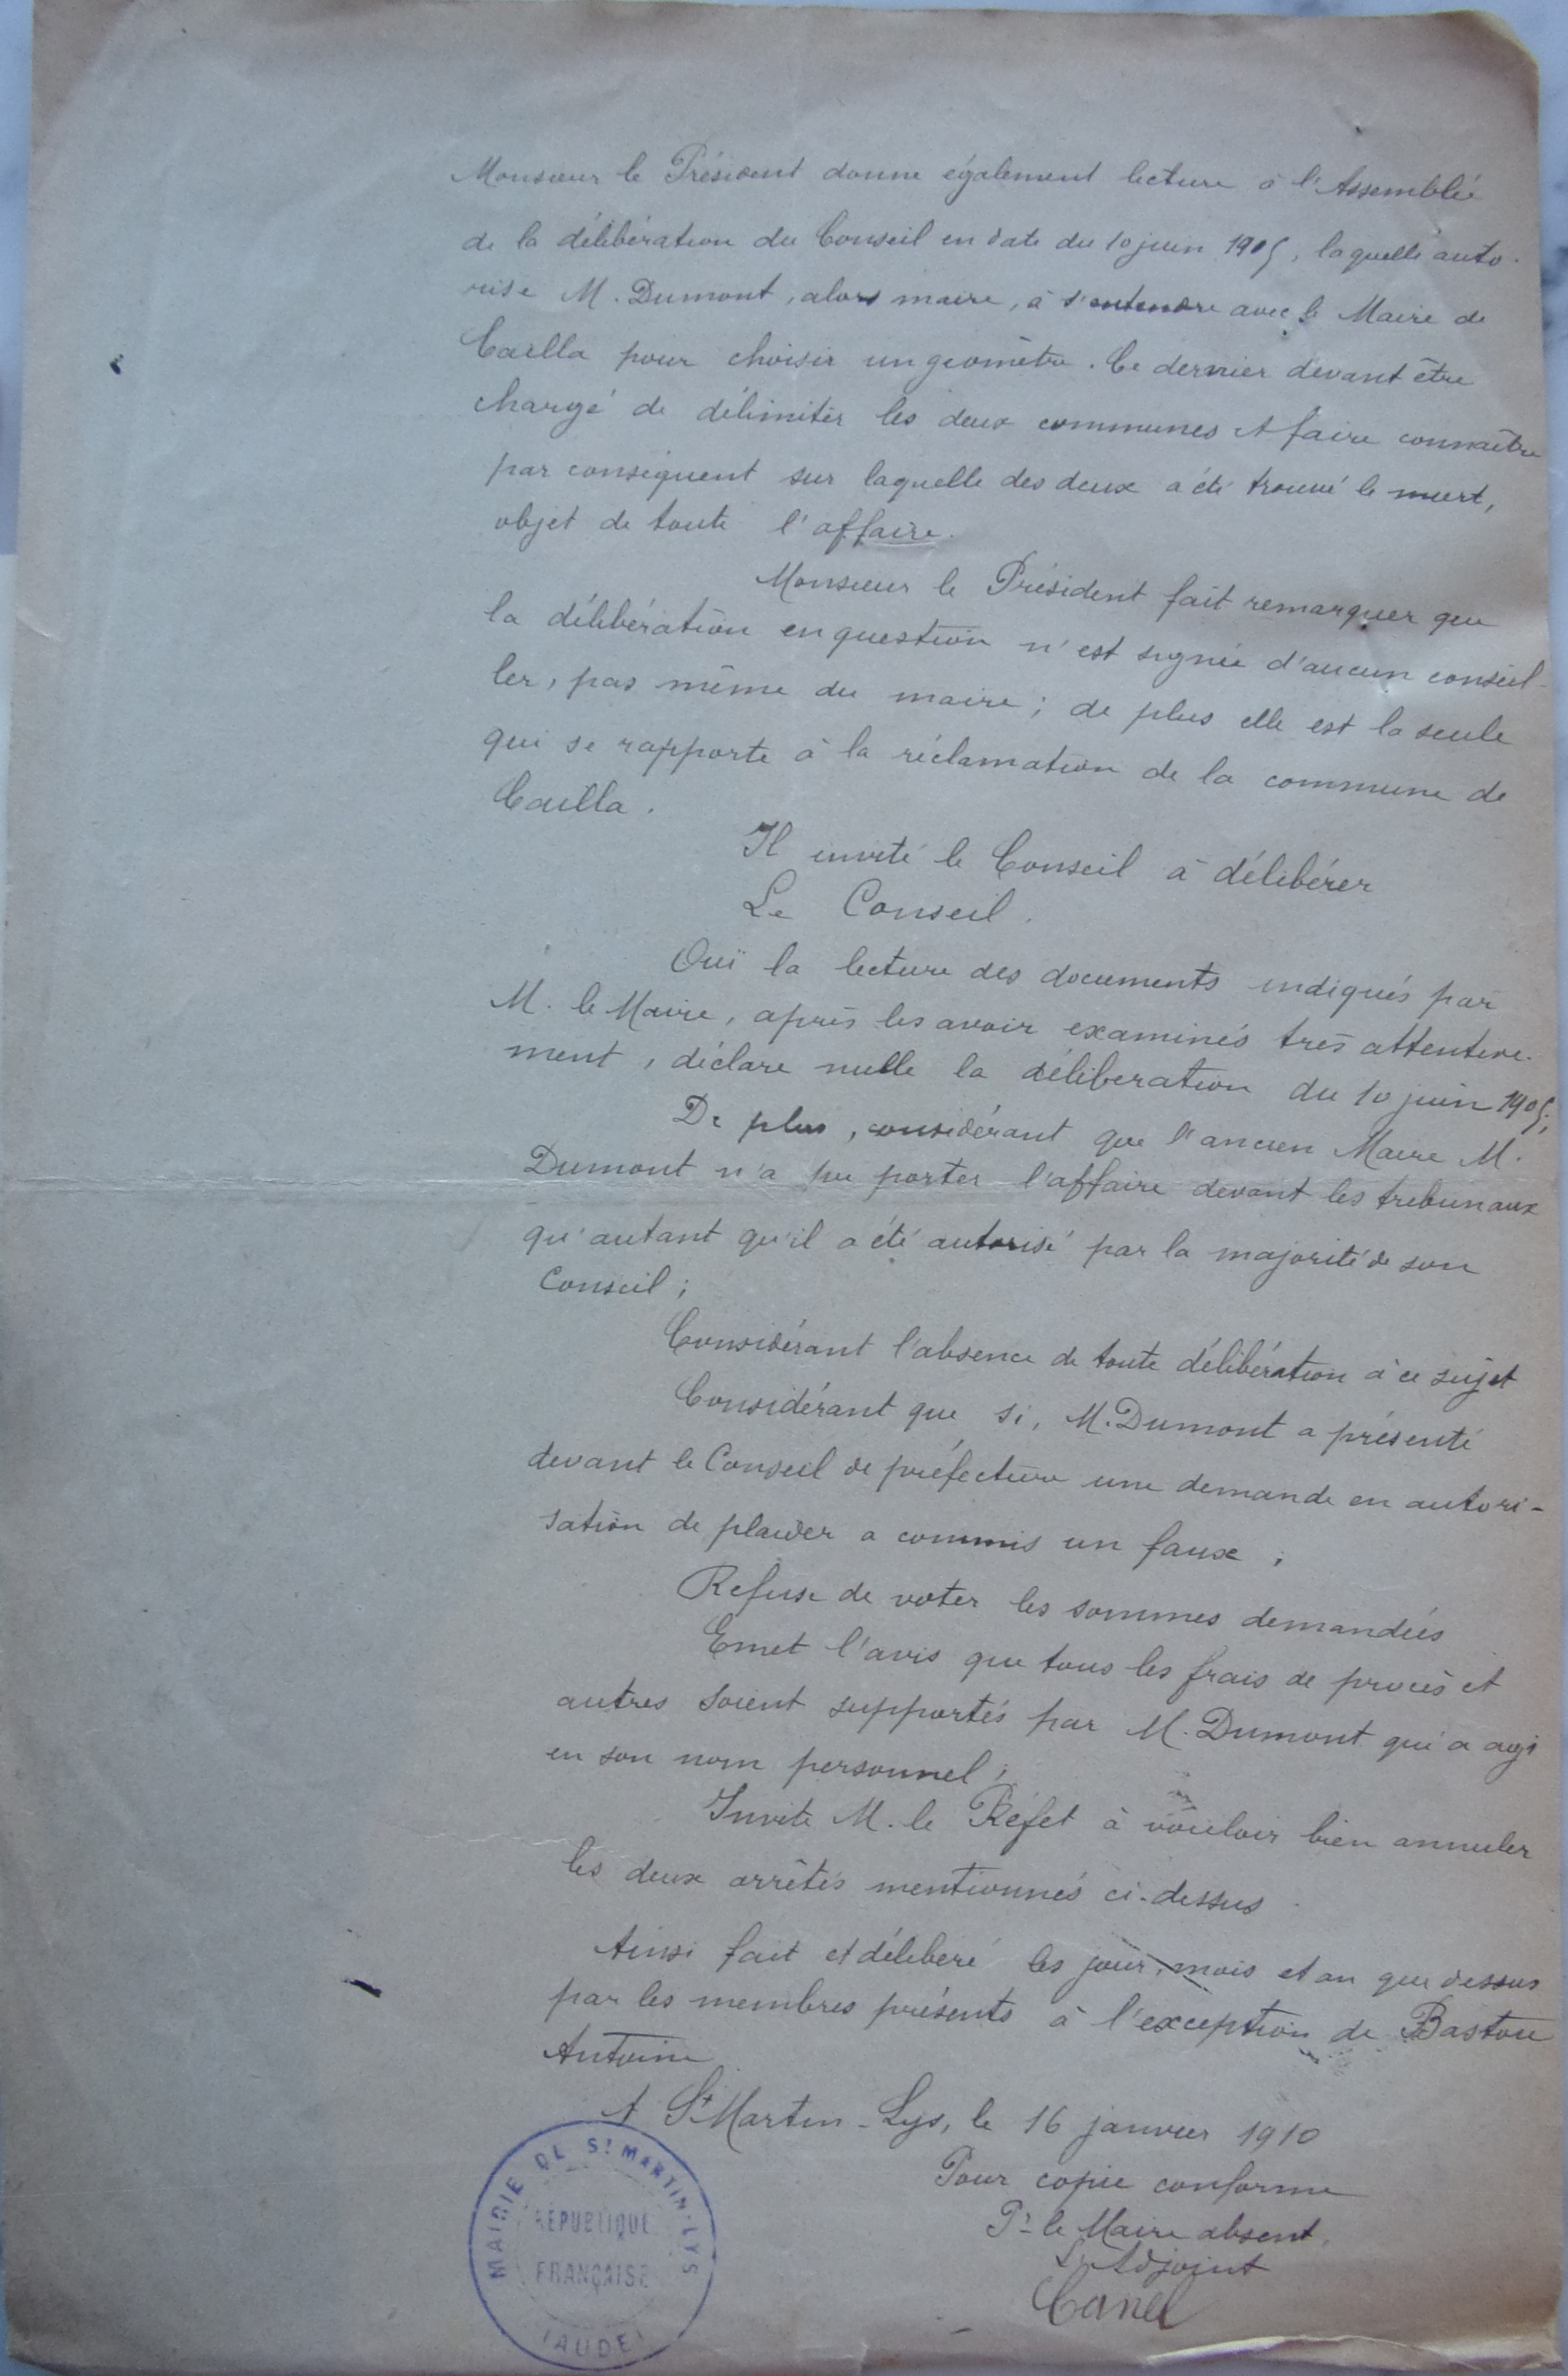 Monsieur le Président donne également lecture à l'Assemblée
de la délibération du Conseil en date du 10 juin 1905, laquelle auto-
rise M. Dumont, alors maire, à s'entendre avec le Maire de
Cailla pour choisir un géomètre. Ce dernier devant être
chargé de délimiter les deux communes et faire connaître
par conséquent sur laquelle des deux a été trouvé le mort,
objet de toute l'affaire.
Monsieur le Président fait remarquer que
la délibération en question n'est signée d'aucun conseil-
ler, pas même du maire ; de plus elle est la seule
qui se rapporte à la réclamation de la commune de
Cailla.
Il invite le Conseil à délibérer
Le Conseil.
Ouï la lecture des documents indiqués par
M. le Maire, après les avoir examinés très attentive-
ment, déclare nulle la délibération du 10 juin 1905;
De plus, considérant que l'ancien Maire M.
Dumont n'a pu porter l'affaire devant les tribunaux
qu'autant qu'il a été autorisé par la majorité de son
Conseil ;
Considérant l'absence de toute délibération à ce sujet
Considérant que si, M. Dumont a présenté
devant le Conseil de préfecture une demande en autori-
sation de plaider a commis un faux ;
Refuse de voter les sommes demandées
Emet l'avis que tous les frais de procès et
autres soient supportés par M. Dumont qui a agi
en son nom personnel ;
Invite M. le Préfet à vouloir bien annuler
les deux arrêtés mentionnés ci-dessus
Ainsi fait et délibéré les jour, mois et an que dessus
par les membres présents à l'exception de Bastou
Antoine
A St Martin-Lys, le 16 janvier 1910
Pour copie conforme
Pr le Maire absent,
L'Adjoint
Canel
MAIRIE DE St MARTIN-LYS
RÉPUBLIQUE
FRANÇAISE
(AUDE)